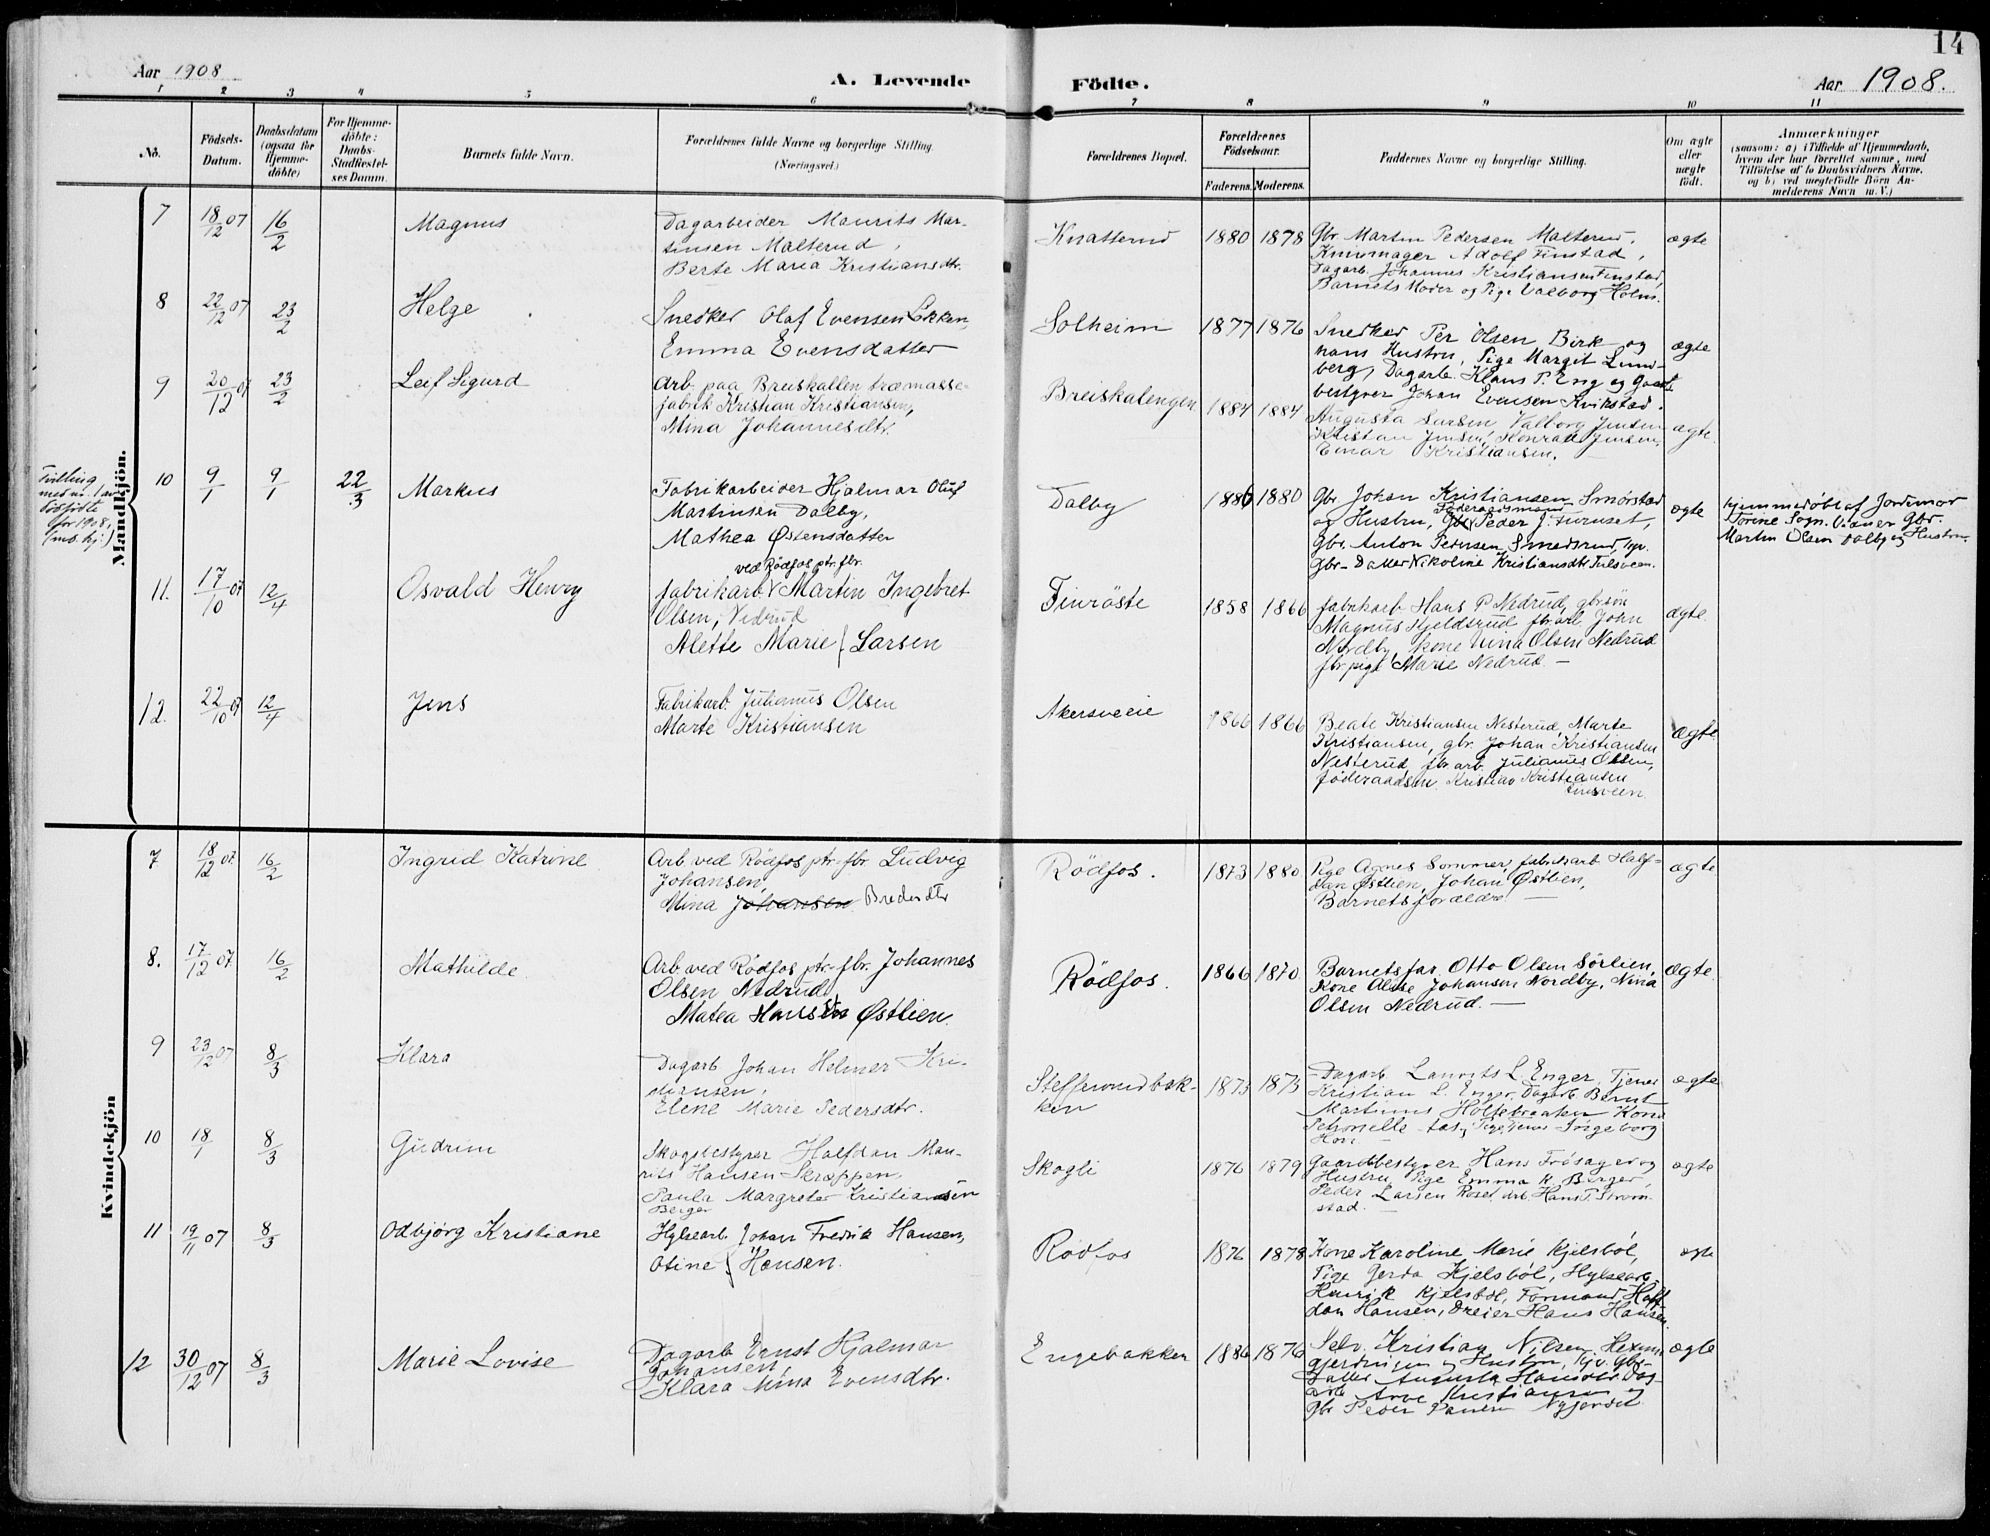 14
Aar 1908
A. Levende Födte.
Aar 1908.
1 2 3 4 5 6 7 8 9 10 11
No.
Födsels-
Datum.
Daabsdatum
(ogsaa for
Hjemme-
döbte)
For Hjemme-
döbte:
Daabs-
Stadfæstel-
ses Datum.
Barnets fulde Navn.
Forældrenes fulde Navne og borgerlige Stilling
(Næringsvei.)
Forældrenes Bopæl.
Forældrenes
Födselsaar.
Faderens. Moderens.
Faddernes Navne og borgerlige Stilling.
Om ægte
eller
uægte
födt.
Anmærkninger
(saasom: a) i Tilfælde af Hjemmedaab,
hvem der har forrettet samme, med
Tilföielse af to Daabsvidners Navne,
og b) ved uegtefödte Börn An-
melderens Navn m. V.)
Mandkjön.
7 18/12 07 16/2 Magnus
Dagarbeider Maurits Mar-
tinsen Malterud,
Berte Maria Kristiansdtr.
Knatterud 1880 1878
Gbr. Martin Pedersen Malterud,
Skomager Adolf Finstad,
Dagarb. Johannes Kristiansen Finstad,
Barnets Moder og Pige Valborg Holm.
ægte
8 22/12 07 23/2 Helge
Snedker Olaf Evensen Løkken,
Emma Evensdatter
Solheim 1877 1876
Snedker Per Olsen Birk og
hans Hustru, Pige Margit Lund-
berg, Dagarb. Klaus P. Eng og Gaards-
bestyrer Johan Evensen Kvikstad.
ægte
9 20/12 07 23/2 Leif Sigurd
Arb. paa Breiskallen træmasse-
fabrik Kristian Kristiansen,
Mina Johannesdtr.
Breiskalengen 1884 1884
Augusta Larsen, Valborg Jensen
Kristian Jensen, Konrad Jensen,
Einar Kristiansen.
ægte.
Tvilling
med nr. 1 av
dødfødte
for 1908,
10 9/1 9/1 22/3 Markus
Fabrikarbeider Hjalmar Oluf
Martinsen Dalby,
Mathea Østensdatter
Dalby 1886 1880
Gbr. Johan Kristiansen Smørstad
Føderaadsmand
og Hustru, Gbr. Peder J. Furuset,
Gbr. Anton Pedersen Smedsrud,
Gbr- Datter Nikoline Kristiansdtr
ægte
hjemmedøbt af Jordemor
Torine Sogn. Vidner Gbr.
Martin Olsen Dalby og Hustru.
11. 17/10 07 12/4 Osvald Henry
ved Rødfos ptr. fbr.
fabrikarb. Martin Ingebret
Olsen, Nedrud
Alette Marie Larsen
Finrøste 1858 1866
fabrikarb Hans P. Nedrud, gbrsøn
Magnus Hjeldsrud fbr arb John
Nordby, kone Nina Olsen Nedrud
fbr pige Marie Nedrud. —
ægte.
12. 22/10 07 12/4 Jens
Fabrikarb Julianus Olsen
Marte Kristiansen
Akersveie 1866 1866
Beate Kristiansen Nesterud, Marte
Kristiansen, gbr. Johan Kristiansen
Nesterud, fbr arb. Julianus Olsen,
føderaadsm. Kristian Kristiansen
ægte.
Kvindekjön
7 18/12 07. 16/2 Ingrid Katrine
Arb. ved Rødfos ptr. fbr. Ludvig
Johansen,
Mina Johansen Bredesdtr
Rødfos. 1873 1880
Pige Agnes Sommer, fabrikarb Half-
dan Østlien, Johan Østlien,
Barnets forældre —
ægte
8. 17/12 07. 16/2 Mathilde.
Arb. ved Rødfos ptr. fbr. Johannes
Olsen Nedrud,
Matea Hansen Østlien.
Rødfos. 1866 1870
Barnets far. Otto Olsen Sørlien,
Kone Alise Johansen Nordby, Nina
Olsen Nedrud. —
ægte.
9 23/12 07 8/3 Klara
Dagarb Johan Helmer Kri-
stiansen,
Elene Marie Pedersdtr.
Steffenrudbak-
ken 1873 1873
Dagarb. Laurits L. Enger, Tjener
Kristian L. Enger, Dagarb Bernt
Martinus Holtebraaten Kona
Ingeborg
ægte
10 18/1 8/3 Gudrun
Skogbestyrer Halfdan Mau-
rits Hansen Skrøppen,
Paula Margrete Kristiansen
Berger
Skogli 1876 1879
Gaardbestyrer Hans Frøsager og
Hustru, Pige Emma K. Berger,
Peder Larsen Roset, Arb. Hans P. Strøm-
stad. —
ægte
11 19/11 07 8/3 Odbjørg Kristiane
Hylsearb. Johan Fredrik Hansen,
Otine Hansen.
Rødfos 1876 1878
Kone Karoline Marie Kjelsbøl,
Pige Gerda Kjelsbøl, Hylsearb.
Henrik Kjelsbøl, Formand Half-
dan Hansen, Dreier Hans Hansen.
ægte
12 30/12 07 8/3 Marie Lovise
Dagarb Ernst Hjalmar
Johansen,
Klara Mina Evensdtr.
Engebakken 1886 1876
Selv. Kristian Nilsen Hexum-
gjerdingen og Hustru, Gbr-
Datter Augusta Dag-
arb Arve Kristiansen og
Gbr Peder Paulsen Nygjerdet
ægte